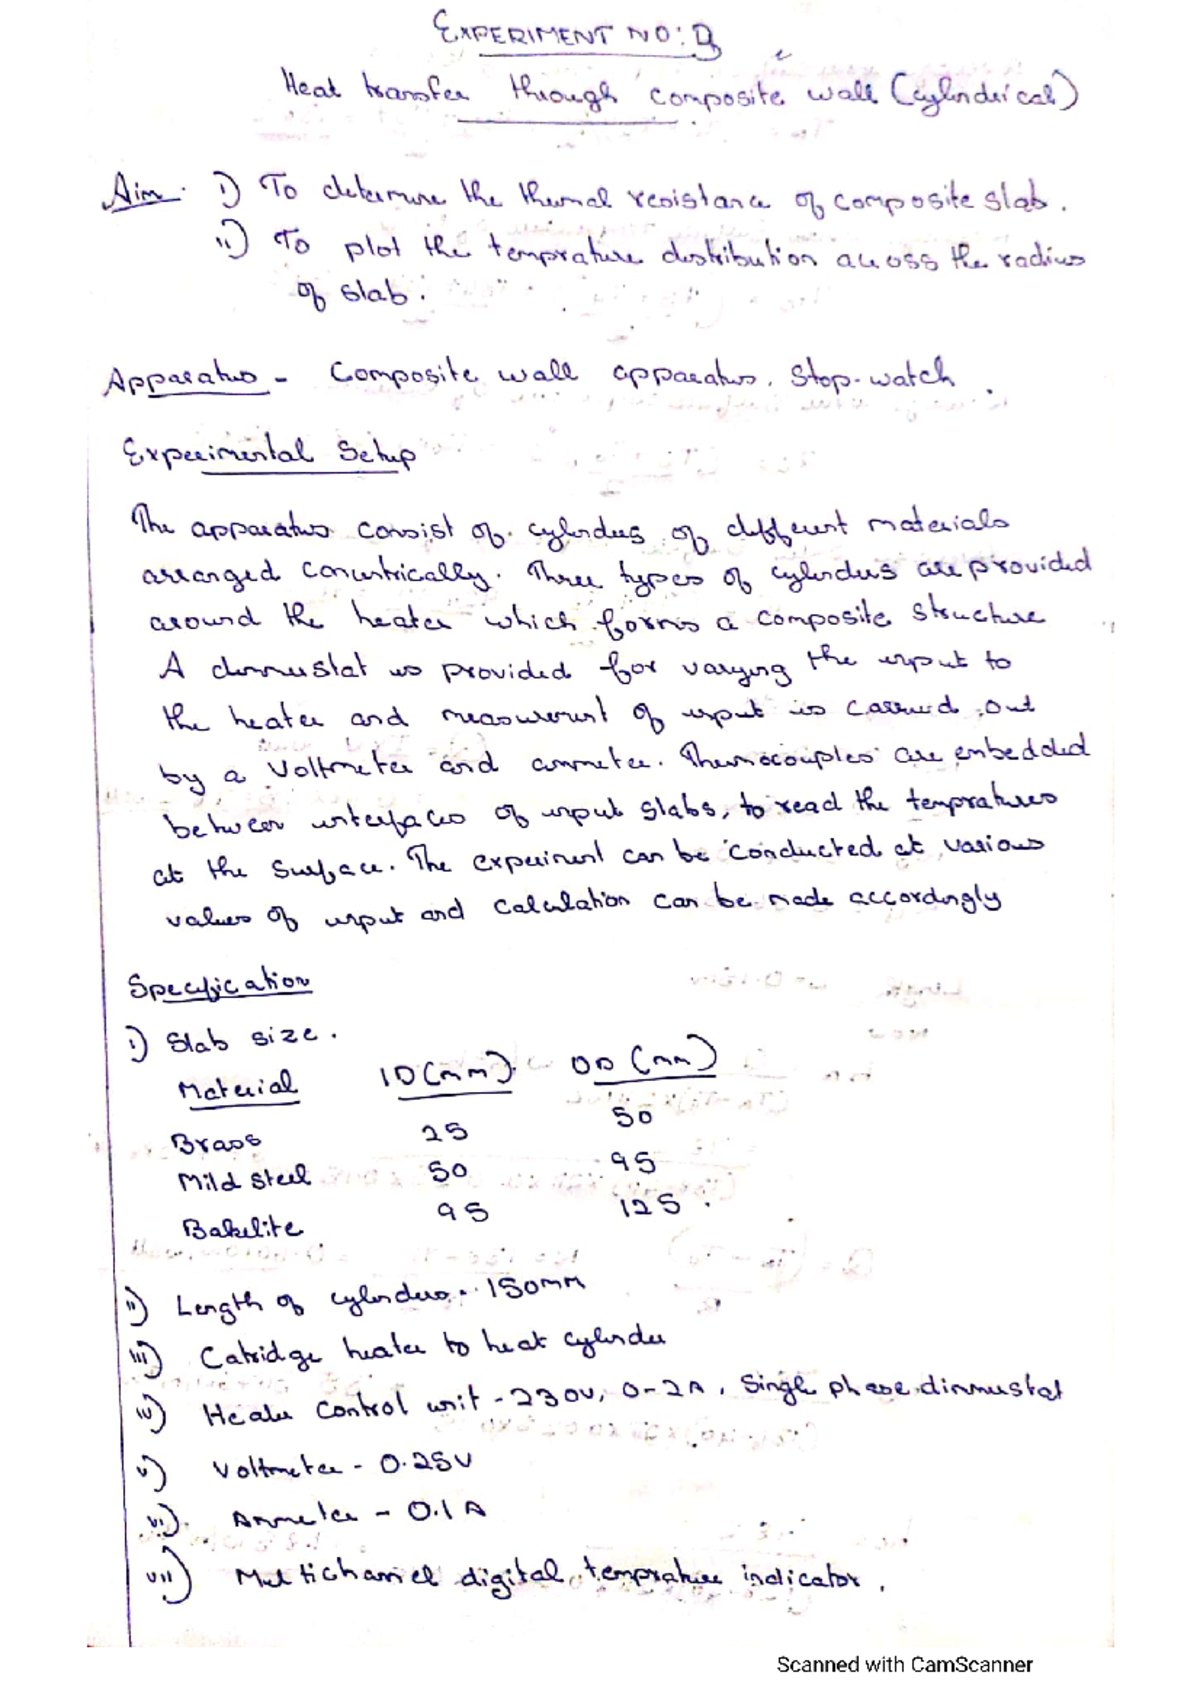 EXPERIMENT NO:
Heat transfer through composite wall (cylindrical)
Aim. i) To determine the thermal resistance of composite slab.
ii) To plot the temprature distribution across the radius
of slab.
Apparatus - Composite wall apparatus, Stop-watch.
Experimental Setup
The apparatus consist of cylinders of different materials
arranged concentrically. Three types of cylinders are provided
around the heater which forms a composite structure
A dimmerstat is provided for varying the input to
the heater and measurement of input is carried out
by a Voltmeter and ammeter. Thermocouples are embedded
between interfaces of input slabs, to read the tempratures
at the surface. The experiment can be conducted at various
values of input and calculation can be made accordingly
Specification
i) Slab size.
Material ID(mm) OD (mm)
Brass 25 50
Mild steel 50 95
Bakelite 95 125.
ii) Length of cylinders - 150mm
iii) Catridge heater to heat cylinder
iv) Heater control unit - 230v, 0-2A, Single phase dimmustat
v) Voltmeter - 0.25V
vi). Ammeter - 0.1A
vii) Multichannel digital temprature indicator.
Scanned with CamScanner